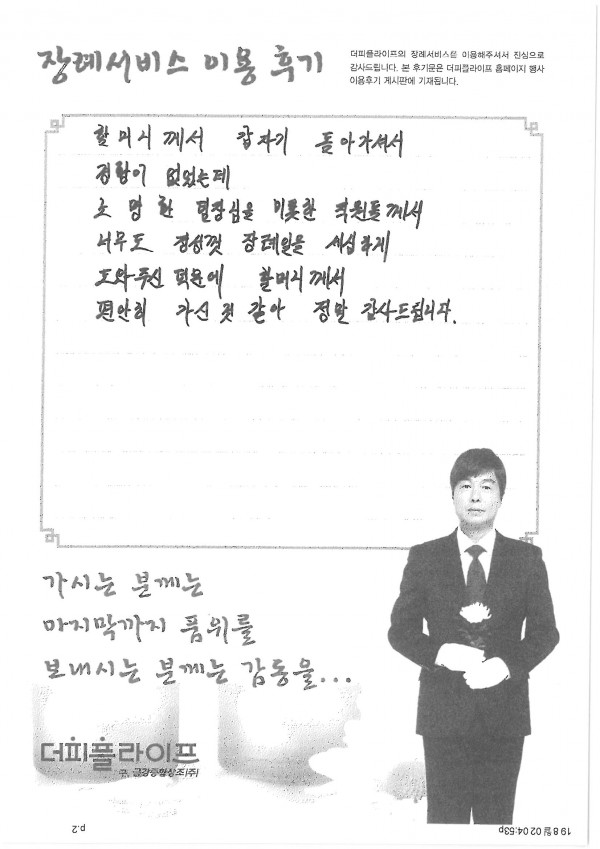 장례서비스 이용 후기
더피플라이프의 장례서비스를 이용해주셔서 진심으로
감사드립니다. 본 후기문은 더피플라이프 홈페이지 행사
이용후기 게시판에 기재됩니다.
할머니께서 갑자기 돌아가셔서
경황이 없었는데
노영한 팀장님을 비롯한 직원들께서
너무도 정성껏 장례일을 세심하게
도와주신 덕분에 할머니께서
편안히 가신 것 같아 정말 감사드립니다.
가시는 분께는
마지막까지 품위를
보내시는 분께는 감동을...
더피플라이프
구. 금강종합상조(주)
p.2
19 8월 02 04:53p